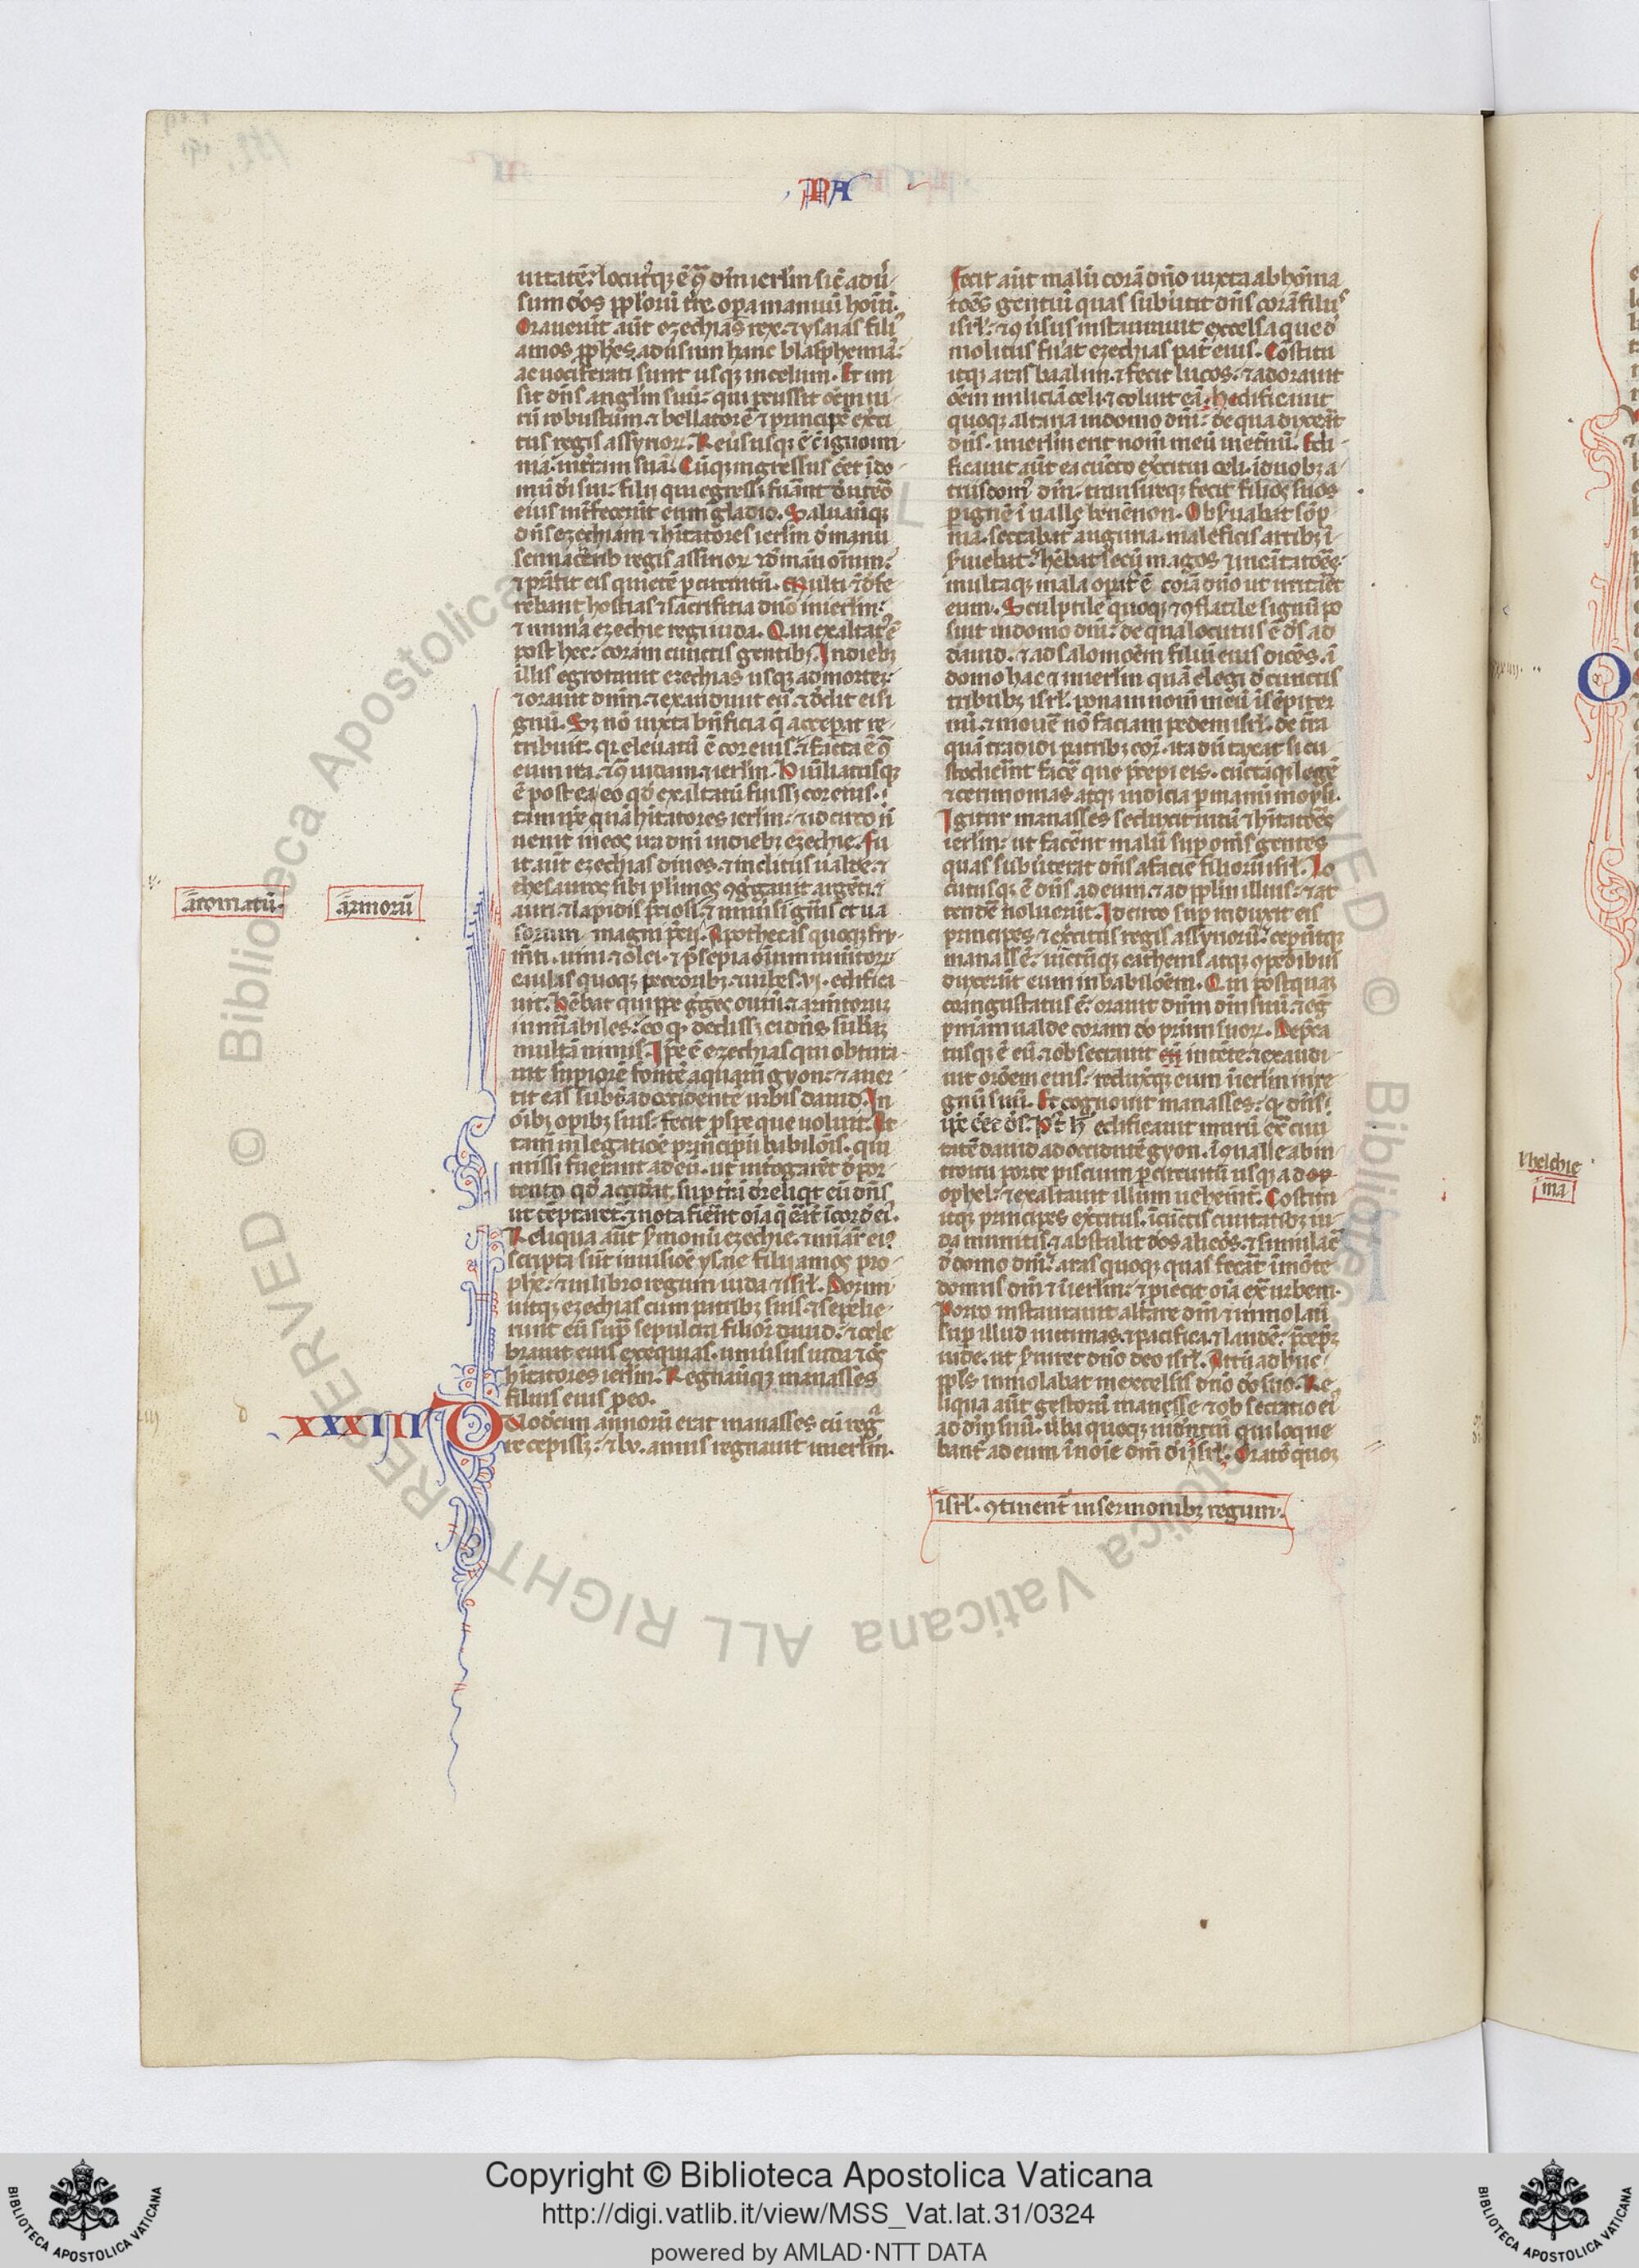 PA
uitatē. locutꝰqꝫ ē ꝯtͣ dm̄ ierlm̄ sic̄ aduͤr
sum dōs pplōrū tr̄e. opa manuū hoīū.
Orauerūt aūt ezechias rex. ⁊ ysaias filiꝰ
amos pph̄es. aduersum hanc blasphemiā.
ac uociferati sunt usqꝫ in celum. Et mi
sit dn̄s angl̄m suū. qui ꝑcussit oēm ui
rū robustum. ⁊ bellatorē ⁊ principē exͬci
tus regis assyrioꝝ. Reuͤsusqꝫ ē cū ignomi
nia. in tr̄am suā. Cūqꝫ ingressus eēt ı̄ do
mū di sui. filij qui egressi fuāut d̓ uteō
eius int̄fecerūt eum gladio. Saluauitqꝫ
dn̄s ezechiam ⁊ hītatores ierlm̄ d̓ manu
sennacherib regis assirioꝝ ⁊ d̓ manu oīum.
⁊ pͬstit eis quietē ꝑ circuitū. Multi ⁊ d̓fe
rebant hostias ⁊ sacrificia dn̄o in ierlm̄.
⁊ munͣa ezechie regi iuda. Qui exaltatꝰ ē
post hec. coram cunctis gentibꝫ. In diebꝫ
illis egrotauit ezechias usqꝫ ad mortez.
⁊ orauit dnm̄. ⁊ exaudiuit eū. ⁊ dedit ei si
gnū. Sꝫ nō iuxta bn̄ficia q̄ acceperat re
tribuit. qꝛ eleuatū ē cor eius. ⁊ facta ē ꝯtͣ
eum ira. ⁊ ꝯtͣ iudam. ⁊ ierlm̄. Hūiliatusqꝫ
ē postea eo qd̓ exaltatū fuissꝫ cor eius.
tam ip̄e quā hītatores ierlm̄. ⁊ idcirco nō
uenit in eos ira dnī in diebꝫ ezechie. Fu
it aūt ezechias diues. ⁊ inclitus ualde. ⁊
thesauros sibi plimos ꝯgͬgauit argēti. ⁊
auri. ⁊ lapidis p̄ciosi. ⁊ uniūsi gn̄is ⁊ ua
sorum magni p̄cij. Apothecas quoqꝫ fru
m̄ti. uini ⁊ olei. ⁊ p̄sepia oīum iumtoꝝ.
caulas quoqꝫ peccoribꝫ. ⁊ urbes. vj. edifica
uit. Hēbat quippe gͬges ouiū. ⁊ armtoruꝫ
innūabiles. eo q. dedissꝫ ei dn̄s subͣꝫ
multā nimis. Ip̄e ē ezechias qui obtura
uit supiorē fontē aquaꝝ gyon. ⁊ auer
tit eas subtͬ ad occidentē urbis dauid. In
oībꝫ opibꝫ suis. fecit ꝓsp̄e que uoluit. Et
tam in legatiōe principū babilōis. qui
missi fuerunt ad eū. ut int̄rogarēt d̓ por
tento qd̓ accid̓at suꝑ tr̄ā. d̓reliqt̓ eū dn̄s
ut tēptaret. ⁊ nota fierēt oīa q̄ erāt ı̄ cord̓ eiꝰ.
Reliqua aūt s̓monū ezechie. ⁊ mīaꝝ eiꝰ
scripta sūt in uisiōe ysaie filij amos pro
phe. ⁊ in libro regum iuda ⁊ isrl̄. Dormi
uitqꝫ ezechias cum patribꝫ suis. ⁊ sepelie
runt eū supͣ sepulcra filioꝝ dauid. ⁊ cele
brauit eius exequias. uniūsus iuda ⁊ oēs
hītatores ierlm̄. Regnauitqꝫ manasses
filius eius ꝓ eo.
XXXIII
Duodecim annorū erat manasses cū regͣ
re cepissꝫ. ⁊ lv. annis regnauit in ierlm̄.
aromatū.
armorū
Fecit aūt malū corā dn̄o iuxta abhoīna
tōes gentiū quas subuͤtit dn̄s corā filijs
isrl̄. ⁊ ꝯuͤsus instaurauit excelsa que d̓
molitus fuāt ezechias pat̄ eius. Cōstitu
itqꝫ aras baalim. ⁊ fecit lucos. ⁊ adorauit
oēm miliciā celi. ⁊ coluit eā. Hedificauit
quoqꝫ altaria in domo dn̄i. de qua dixeāt
dn̄s. in ierlm̄ erit nom̄ meū in et̄nū. Edi
ficauit aūt ea cūcto exͬcitui celi. ı̄ duobꝫ a
triis domꝰ dn̄i. transireqꝫ fecit filios suos
ꝑ ignē ı̄ ualle benēnon. Obs̓uabat sōp
nia. sectabat̄ auguria. maleficis artibꝫ ı̄
s̓uiebat. hēbat secū magos ⁊ incātatoēs.
multaqꝫ mala opatꝰ ē corā dn̄o ut irritāet
eum. Sculptile quoqꝫ ⁊ ꝯflatile signū po
suit in domo dn̄i. de qua locutus ē ds̄ ad
dauid. ⁊ ad salomoēm filiū eius dicēs. ı̄
domo hac ⁊ in ierlm̄ quā elegi d̓ cunctis
tribubꝫ isrl̄. ponam nom̄ meū ı̄ sēpiter
nū. ⁊ mouē nō faciam pedem isrl̄. de tr̄a
quā tradidi patribꝫ eoꝝ. ita dū taxat si cu
stodierint facē que p̄cepi eis. cūctāqꝫ legē
⁊ cerimonias atqꝫ iudicia ꝑ manū moysi.
Igitur manasses seduxit iudā ⁊ hītatoēs
ierlm̄. ut facēnt malū suꝑ om̄s gentes
quas subuͤterat dn̄s a facie filiorū isrl̄. Lo
cutusqꝫ ē dn̄s ad eum. ⁊ ad pplm̄ illius. ⁊ at
tendē noluerūt. Idcirco supinduxit eis
principes ⁊ exͬcitus regis assyriorū. ceperūtqꝫ
manassē. uīctūqꝫ cathenis atqꝫ ꝯpedibus
duxerūt eum in babilōem. Qui postquaꝫ
coangustatus ē. orauit dnm̄ dm̄ suū. ⁊ eḡ
pniam ualde coram dō pr̄um suoꝝ. Dep̄ca
tusqꝫ ē eū. ⁊ obsecrauit intēte. ⁊ exaudi
uit orōem eius. reduxitqꝫ eum ierlm̄ in re
gnū suū. Et cognouit manasses. q. dn̄s
ip̄e eēt ds̄. Pꝰt h̄ edificauit murū exͬ ciui
tatē dauid ad occidentē gyon. ı̄ ualle ab in
troitu porte pisciū ꝑ circuitū usqꝫ ad
ophel. ⁊ exaltauit illum uehem̄t. Cōstitu
itqꝫ principes exͬcitus. ı̄ cūctis ciuitatibꝫ iu
da munitis. ⁊ abstulit dōs alienos. ⁊ simulacͬ
d̓ domo dn̄i. aras quoqꝫ quas fecāt ı̄ mōte
domus dn̄i ⁊ ı̄ ierlm̄. ⁊ ꝓiecit oīa exͬ urbem.
Porro instaurauit altare dn̄i. ⁊ immolauit
suꝑ illud uictimas. ⁊ pacifica. ⁊ laudē. p̄cepitqꝫ
iude. ut s̓uiret dn̄o deo isrl̄. Attn̄ adhuc
ppl̄s immolabat in excelsis dn̄o dō suo. Re
liqua aūt gestorū manasse ⁊ obsecratio eiꝰ
ad dm̄ suū. uͤba quoqꝫ uidentiū qui loque
bant̄ ad eum ı̄ noīe dn̄i di isrl̄. Oratō quoqꝫ
isrl̄. ꝯtinent̄ in sermonibꝫ regum.
O
helchie
ma
Copyright © Biblioteca Apostolica Vaticana
http://digi.vatlib.it/view/MSS_Vat.lat.31/0324
powered by AMLAD·NTT DATA
BIBLIOTECA APOSTOLICA VATICANA
BIBLIOTECA APOSTOLICA VATICANA